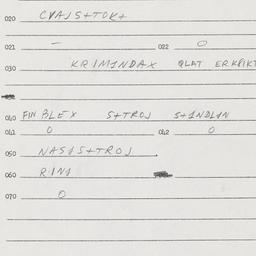 020 CVAJS+TOK+
021 - 022 O
030 KRIMINDAX QLAT ERKRIKT
040 FIN BLEX S+TROJ S+ANDLAN
041 O 042 O
050 NASAS+TROJ.
060 RINA
070 O